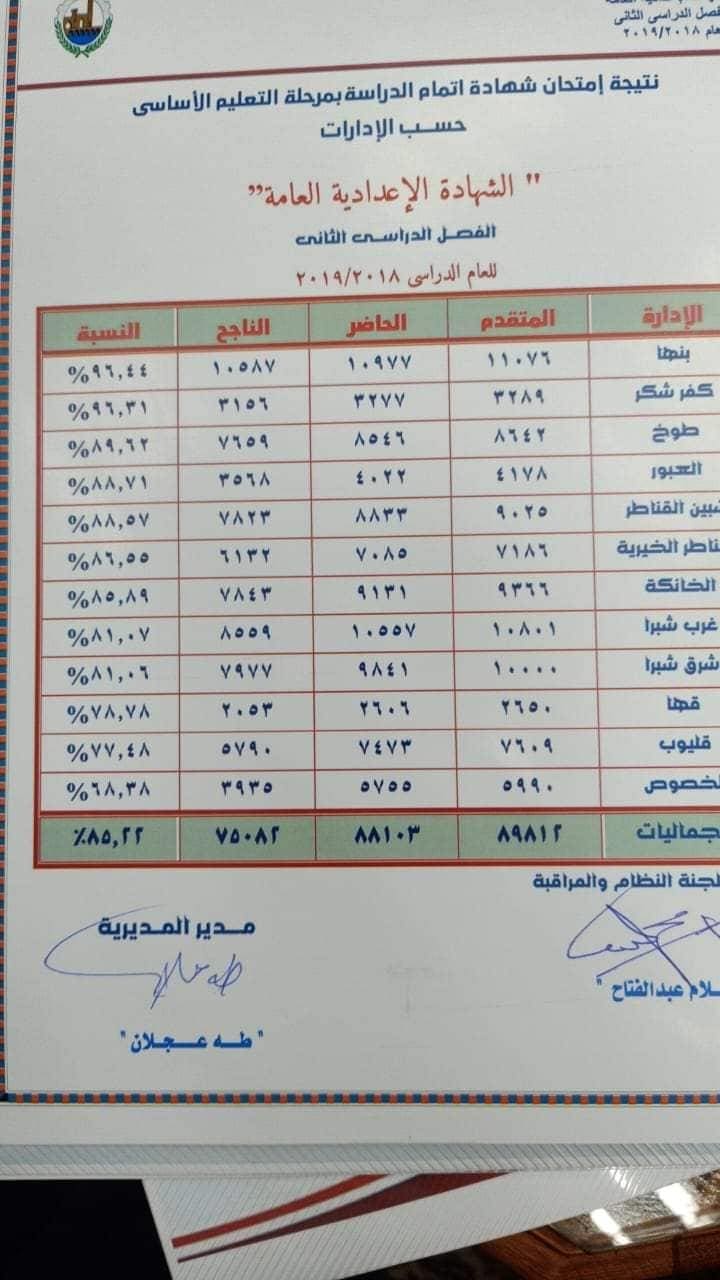 فصل الدراسى الثانى
٢٠١٩/٢٠١٨
نتيجة إمتحان شهادة اتمام الدراسة بمرحلة التعليم الأساسى
حسب الإدارات
" الشهادة الإعدادية العامة"
الفصل الدراسى الثانى
للعام الدراسى ٢٠١٩/٢٠١٨
الإدارة المتقدم الحاضر الناجح النسبة
بنها ١١٠٧٦ ١٠٩٧٧ ١٠٥٨٧ ٩٦,٤٤%
كفر شكر ٣٢٨٩ ٣٢٧٧ ٣١٥٦ ٩٦,٣١%
طوخ ٨٦٤٢ ٨٥٤٦ ٧٦٥٩ ٨٩,٦٢%
العبور ٤١٧٨ ٤٠٢٢ ٣٥٦٨ ٨٨,٧١%
شبين القناطر ٩٠٢٥ ٨٨٣٣ ٧٨٢٣ ٨٨,٥٧%
ناطر الخيرية ٧١٨٦ ٧٠٨٥ ٦١٣٢ ٨٦,٥٥%
الخانكة ٩٣٦٦ ٩١٣١ ٧٨٤٣ ٨٥,٨٩%
غرب شبرا ١٠٨٠١ ١٠٥٥٧ ٨٥٥٩ ٨١,٠٧%
شرق شبرا ١٠٠٠٠ ٩٨٤١ ٧٩٧٧ ٨١,٠٦%
قها ٢٦٥٠ ٢٦٠٦ ٢٠٥٣ ٧٨,٧٨%
قليوب ٧٦٠٩ ٧٤٧٣ ٥٧٩٠ ٧٧,٤٨%
لخصوص ٥٩٩٠ ٥٧٥٥ ٣٩٣٥ ٦٨,٣٨%
جماليات ٨٩٨١٢ ٨٨١٠٣ ٧٥٠٨٢ ٨٥,٢٢٪
لجنة النظام والمراقبة
مدير المديرية
طه عجلان
سلام عبدالفتاح "
" طه عجلان "